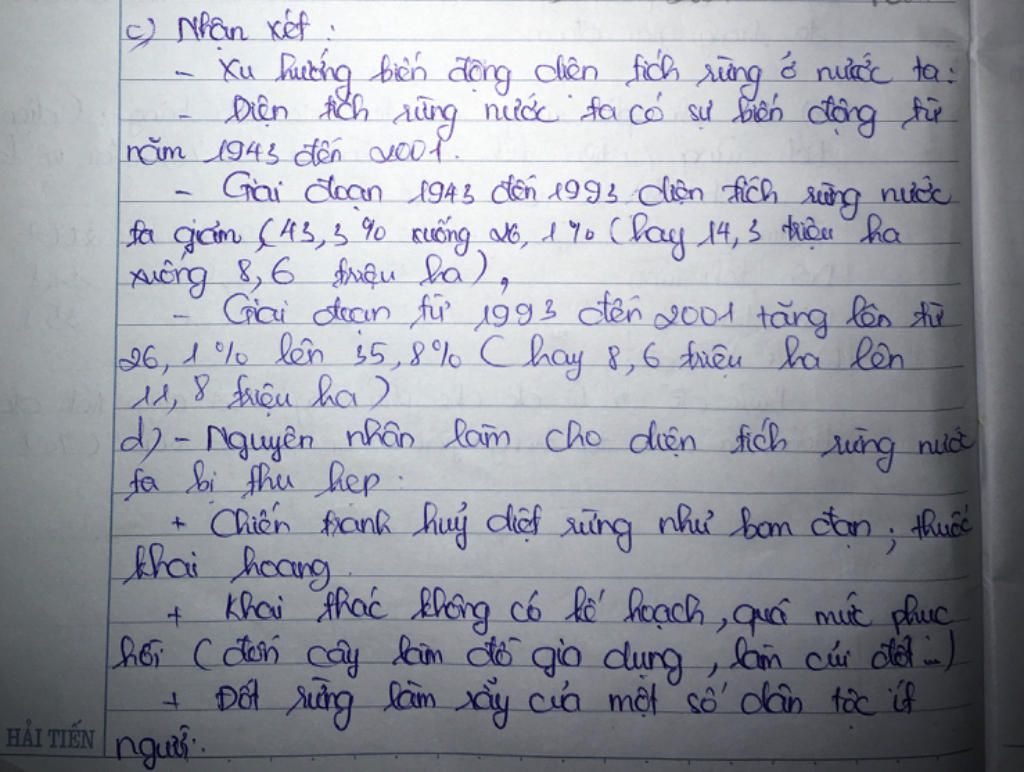 c) Nhận xét :
- Xu hướng biến động diện tích rừng ở nước ta:
- Diện tích rừng nước ta có sự biến động từ
năm 1943 đến 2001.
- Giai đoạn 1943 đến 1993 diện tích rừng nước
ta giảm (43,3% xuống 26,1% (hay 14,3 triệu ha
xuống 8,6 triệu ha),
- Giai đoạn từ 1993 đến 2001 tăng lên từ
26,1% lên 35,8% (hay 8,6 triệu ha lên
11,8 triệu ha)
d) - Nguyên nhân làm cho diện tích rừng nước
ta bị thu hẹp:
+ Chiến tranh huỷ diệt rừng như bom đạn; thuốc
khai hoang.
+ Khai thác không có kế hoạch, quá mức phục
hồi (đốn cây làm đồ gia dụng, làm củi đốt...)
+ Đốt rừng làm rẫy của một số dân tộc ít
người.
HẢI TIẾN